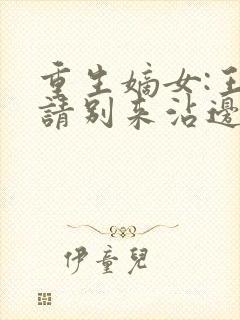 重生嫡女:王
請別來沾邊
伊童兒